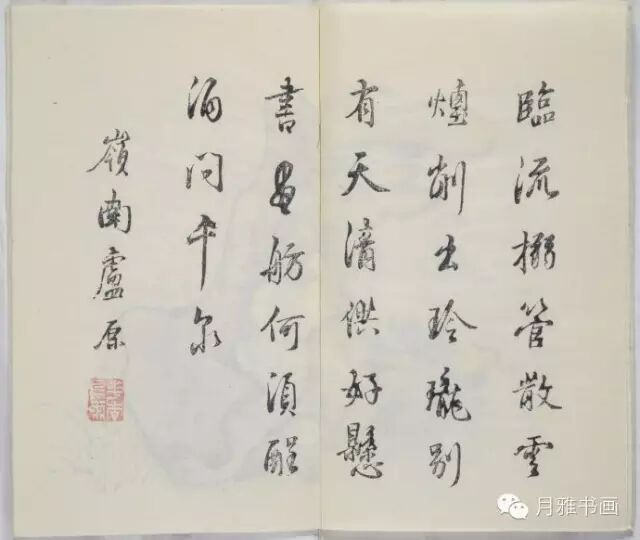 臨流搦管散雲
煙削出玲瓏別
有天清供好懸
書畫舫何須醒
酒問平泉
嶺南盧原
月雅书画